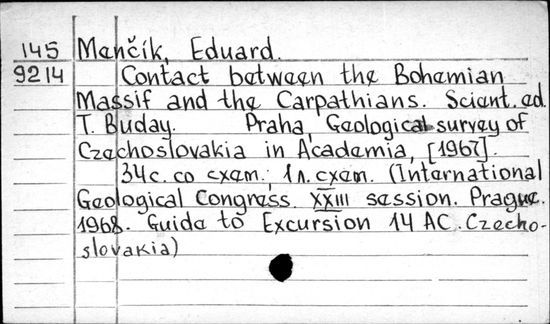 145 Menčík, Eduard.
9214 Contact between the Bohemian
Massif and the Carpathians. Scient. ed.
T. Buday. Praha, Geological survey of
Czechoslovakia in Academia, [1967].
34с. со схем.; 1л. схем. (International
Geological Congress. XXIII session. Prague.
1968. Guide to Excursion 14 AC. Czecho-
slovakia)